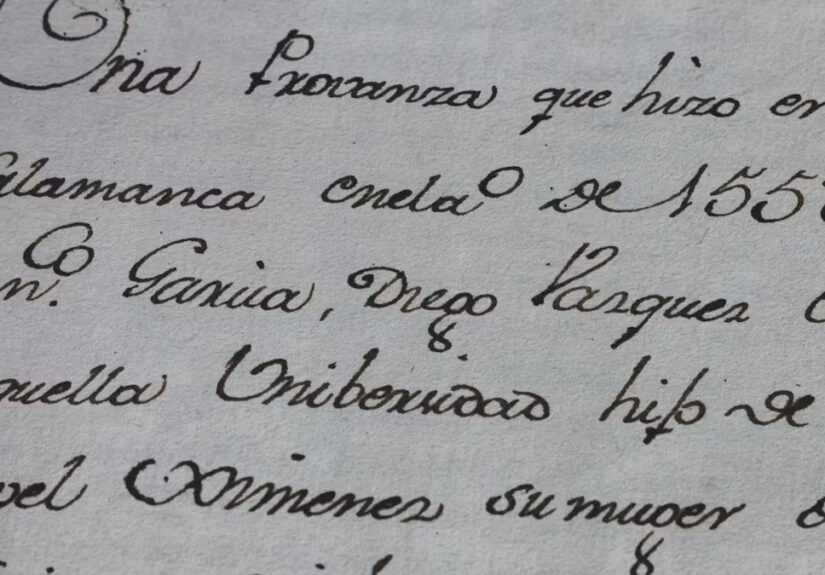 Una Provanza que hizo en
Salamanca enel aº de 155
n.co Garcia, Diego Vazquez
quella Unibersidad hijo de
Ximenez su muger